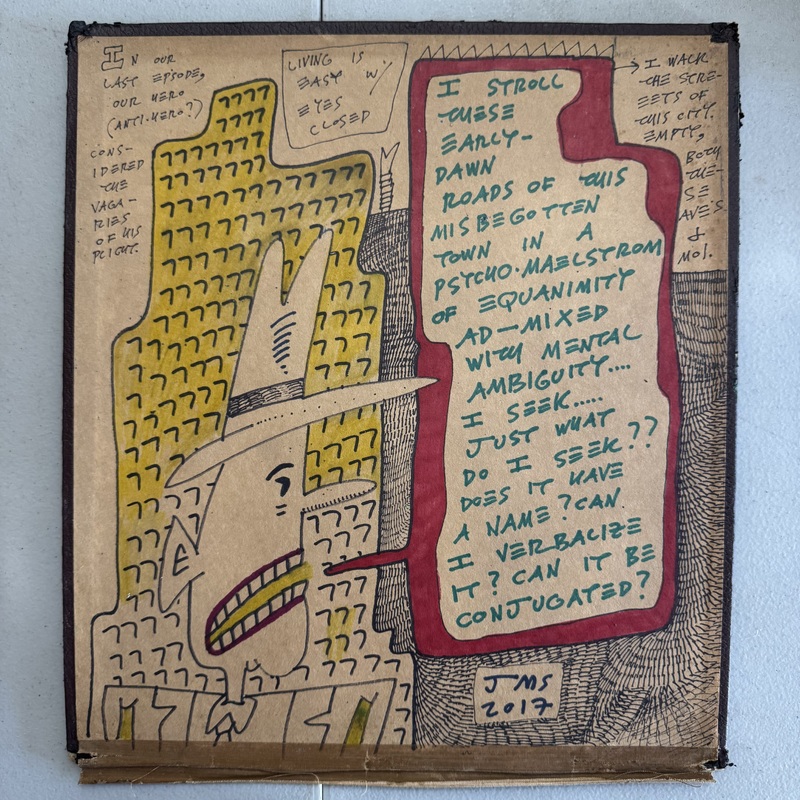 IN OUR
LAST EPISODE,
OUR HERO
(ANTI-HERO?)
CONS-
IDERED
THE
VAGA-
RIES
OF HIS
PLIGHT.
LIVING IS
EASY W/
EYES
CLOSED
I STROLL
THESE
EARLY-
DAWN
ROADS OF THIS
MISBEGOTTEN
TOWN IN A
PSYCHO-MAELSTROM
OF EQUANIMITY
AD-MIXED
WITH MENTAL
AMBIGUITY....
I SEEK.....
JUST WHAT
DO I SEEK??
DOES IT HAVE
A NAME? CAN
I VERBALIZE
IT? CAN IT BE
CONJUGATED?
I WALK
THE STRE-
EETS OF
THIS CITY.
EMPTY,
BOTH
THE-
SE
AVE'S
& MOI.
JMS
2017